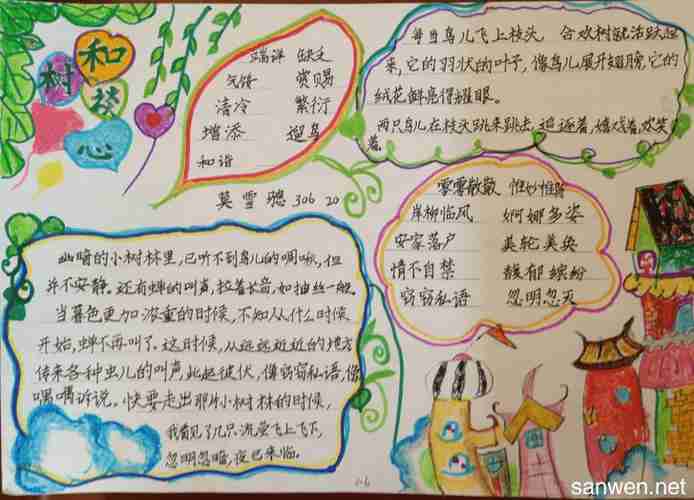 和
树
谈
心
端详 缺乏
气馁 赏赐
清冷 繁衍
增添 遛鸟
和谐
莫雪璁 306 20
每当鸟儿飞上枝头 合欢树就活跃起
来,它的羽状的叶子,像鸟儿展开翅膀,它的
绒花鲜亮得耀眼。
两只鸟儿在枝头跳来跳去,追逐着,嬉戏着,欢笑
着。
零零散散 惟妙惟肖
岸柳临风 婀娜多姿
安家落户 美轮美奂
情不自禁 馥郁缤纷
窃窃私语 忽明忽灭
幽暗的小树林里,已听不到鸟儿的啁啾,但
并不安静。还有蝉的叫声,拉着长音,如抽丝一般。
当暮色更加浓重的时候,不知从什么时候
开始,蝉不再叫了。这时候,从远远近近的地方
传来各种虫儿的叫声,此起彼伏,像窃窃私语,像
喁喁诉说。快要走出那片小树林的时候,
我看见了几只流萤飞上飞下,
忽明忽暗,夜已来临。
sanwen.net